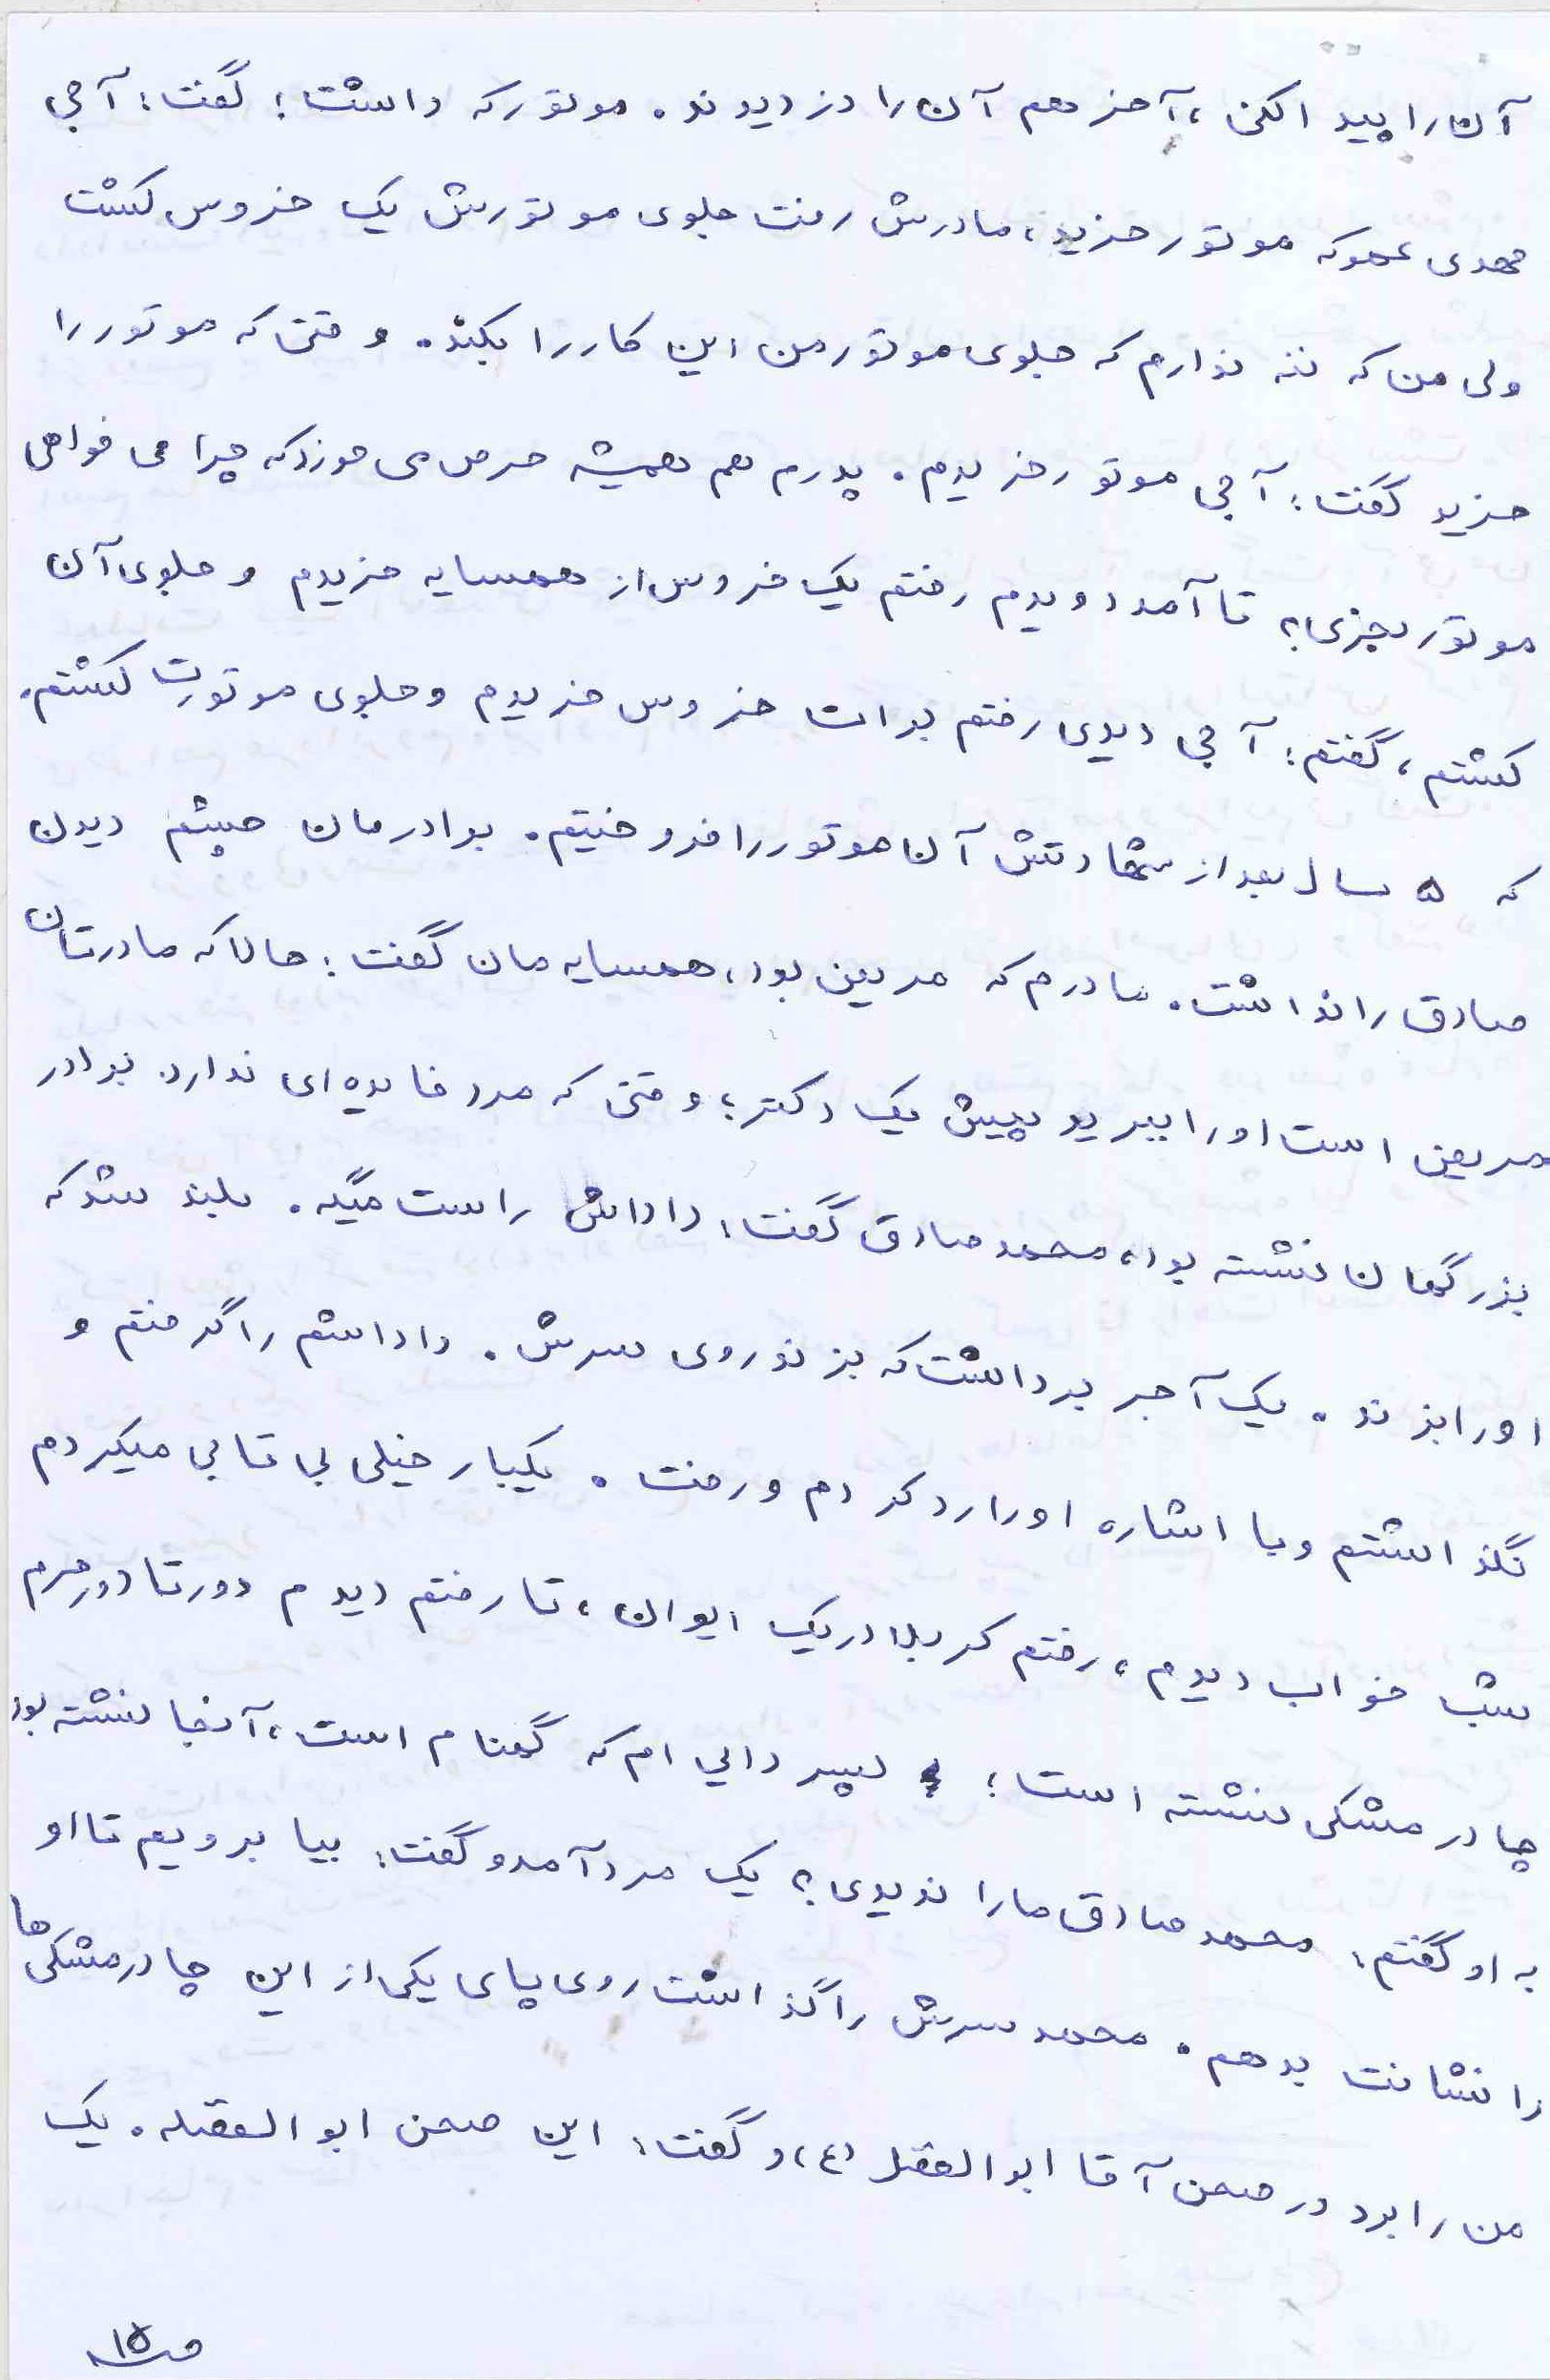 آن را پیدا کنی، آخر هم آن را دزدیدند. موتور که داشت؛ گفت: آجی
مهدی عمو که موتور خرید، مادرش رفت جلوی موتورش یک خروس کشت
ولی من که ننه ندارم که جلوی موتور من این کار را بکند. وقتی که موتور را
خرید گفت: آجی موتور خریدم. پدرم هم همیشه حرص می خورد که چرا می خواهی
موتور بخری؟ تا آمد دویدم رفتم یک خروس از همسایه خریدم و جلوی آن
کشتم، گفتم: آجی دیدی رفتم برات خروس خریدم و جلوی موتورت کشتم.
که ۵ سال بعد از شهادتش آن موتور را فروختیم. برادرمان چشم دیدن
صادق را نداشت. مادرم که مریض بود، همسایه مان گفت: حالا که مادرتان
مریض است او را ببرید پیش یک دکتر؛ وقتی که مرد فایده ای ندارد. برادر
بزرگمان نشسته بود، محمد صادق گفت: داداش راست میگه. بلند شد که
او را بزند. یک آجر برداشت که بزند روی سرش. داداشم را گرفتم و
نگذاشتم و با اشاره او را رد کردم و رفت. یکبار خیلی بی تابی میکردم
شب خواب دیدم، رفتم کربلا در یک ایوان، تا رفتم دیدم دور تا دور حرم
چادر مشکی نشسته است؛ پسر دایی ام که گمنام است، آنجا نشسته بود
به او گفتم: محمد صادق ما را ندیدی؟ یک مرد آمد و گفت: بیا برویم تا او
را نشانت بدهم. محمد سرش را گذاشت روی پای یکی از این چادر مشکی ها
من را برد در صحن آقا ابوالفضل (ع) و گفت: این صحن ابوالفضله. یک
ص ۱۵